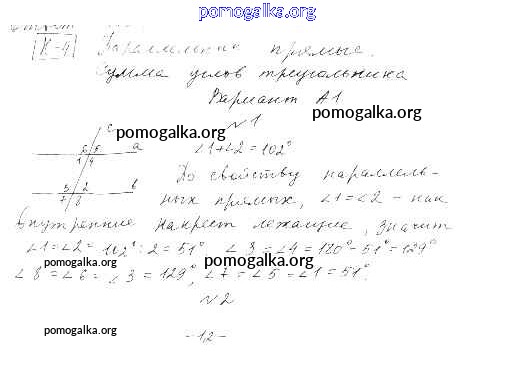 pomogalka.org
К-4 Параллельные прямые.
Сумма углов треугольника
Вариант А1
pomogalka.org
pomogalka.org
№1
c
a
b
∠1+∠2=102°
По свойству параллель-
ных прямых, ∠1=∠2 - как
внутренние накрест лежащие, значит
∠1=∠2= 102°:2=51° ∠3=∠4=180°-51°=129°
∠8=∠6=∠3=129°, ∠7=∠5=∠1=51°.
pomogalka.org
pomogalka.org
№2
pomogalka.org
-12-